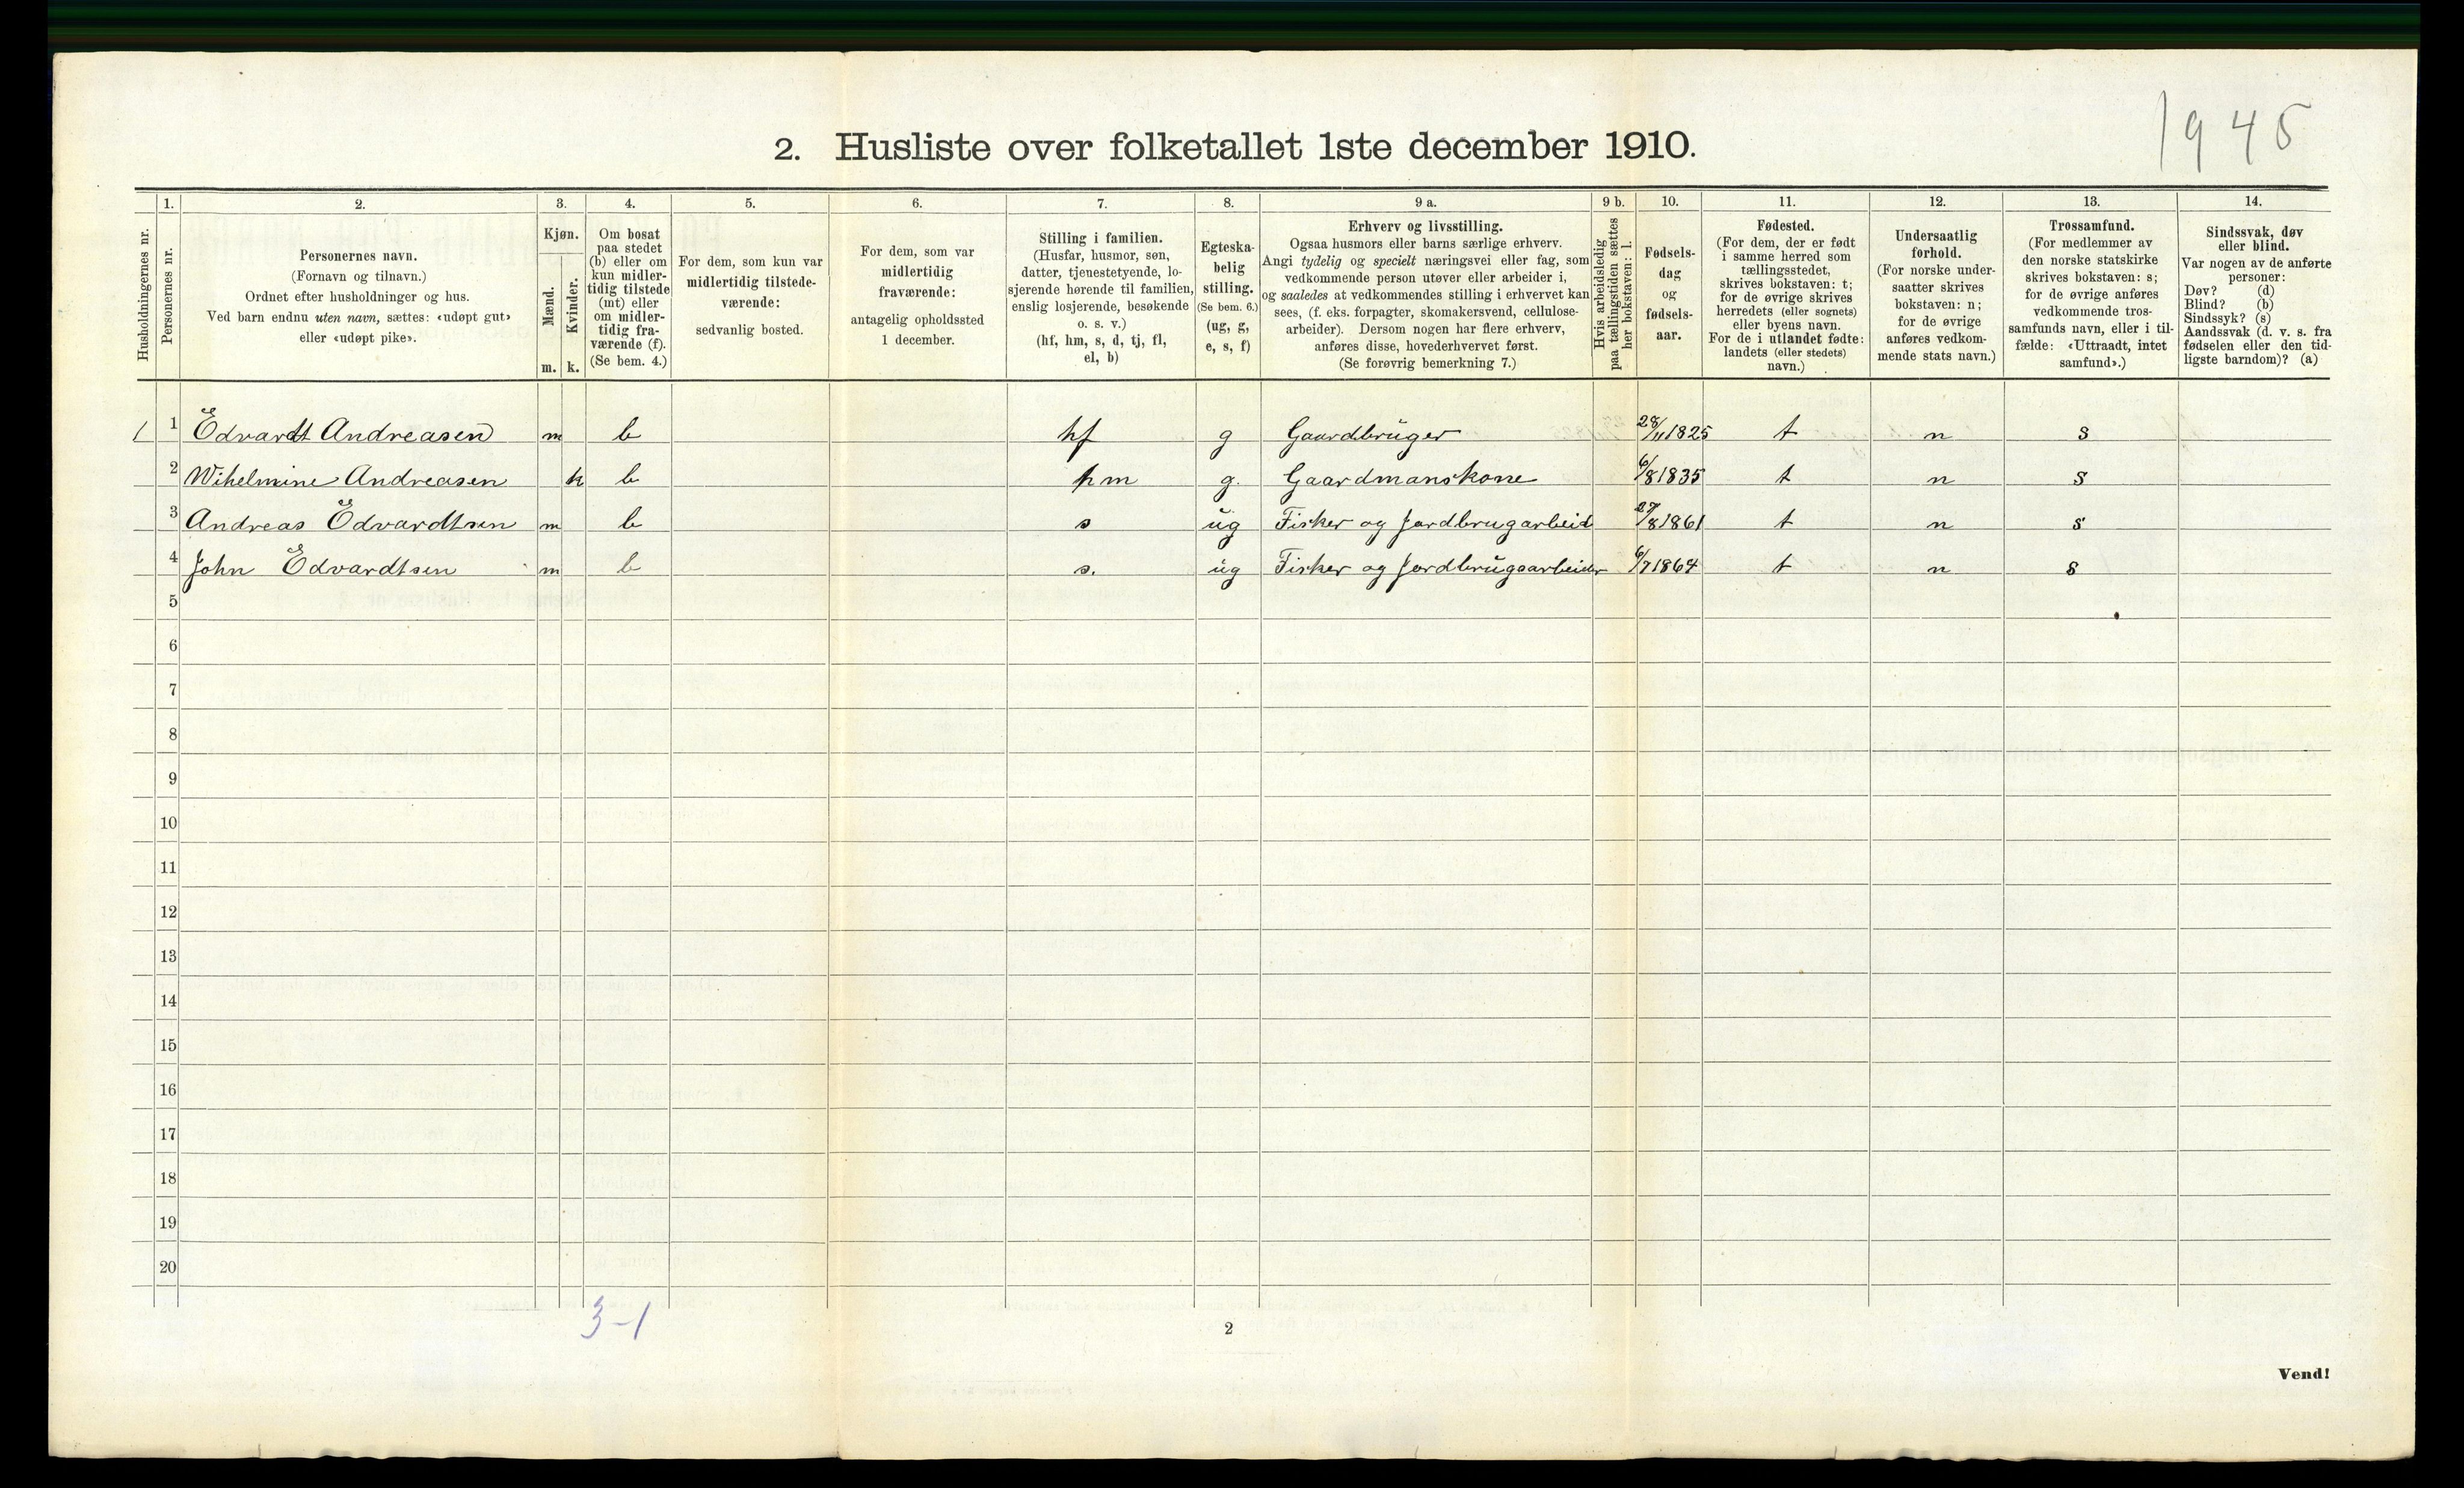 1945
2. Husliste over folketallet 1ste december 1910.
1. 2. 3. 4. 5. 6. 7. 8. 9 a. 9 b. 10. 11. 12. 13. 14.
Husholdningernes nr.
Personernes nr.
Personernes navn.
(Fornavn og tilnavn.)
Ordnet efter husholdninger og hus.
Ved barn endnu uten navn, sættes: «udøpt gut»
eller «udøpt pike».
Kjøn.
Mænd.
Kvinder.
m. k.
Om bosat
paa stedet
(b) eller om
kun midler-
tidig tilstede
(mt) eller
om midler-
tidig fra-
værende (f).
(Se bem. 4.)
For dem, som kun var
midlertidig tilstede-
værende:
sedvanlig bosted.
For dem, som var
midlertidig
fraværende:
antagelig opholdssted
1 december.
Stilling i familien.
(Husfar, husmor, søn,
datter, tjenestetyende, lo-
sjerende hørende til familien,
enslig losjerende, besøkende
o. s. v.)
(hf, hm, s, d, tj, fl,
el, b)
Egteska-
belig
stilling.
(Se bem. 6.)
(ug, g,
e, s, f)
Erhverv og livsstilling.
Ogsaa husmors eller barns særlige erhverv.
Angi tydelig og specielt næringsvei eller fag, som
vedkommende person utøver eller arbeider i,
og saaledes at vedkommendes stilling i erhvervet kan
sees, (f. eks. forpagter, skomakersvend, cellulose-
arbeider). Dersom nogen har flere erhverv,
anføres disse, hovederhvervet først.
(Se forøvrig bemerkning 7.)
Hvis arbeidsledig
paa tællingstiden sættes
her bokstaven: l.
Fødsels-
dag
og
fødsels-
aar.
Fødested.
(For dem, der er født
i samme herred som
tællingsstedet,
skrives bokstaven: t;
for de øvrige skrives
herredets (eller sognets)
eller byens navn.
For de i utlandet fødte:
landets (eller stedets)
navn.)
Undersaatlig
forhold.
(For norske under-
saatter skrives
bokstaven: n;
for de øvrige
anføres vedkom-
mende stats navn.)
Trossamfund.
(For medlemmer av
den norske statskirke
skrives bokstaven: s;
for de øvrige anføres
vedkommende tros-
samfunds navn, eller i til-
fælde: «Uttraadt, intet
samfund».)
Sindssvak, døv
eller blind.
Var nogen av de anførte
personer:
Døv? (d)
Blind? (b)
Sindssyk? (s)
Aandssvak (d. v. s. fra
fødselen eller den tid-
ligste barndom)? (a)
1 1 Edvardt Andreasen m b hf g Gaardbruger 28/11 1825 t n s
2 Wihelmine Andreasen k b hm g. Gaardmanskone 6/8 1835 t n s
3 Andreas Edvardtsen m b s ug Fisker og Jordbrugarbeid 27/8 1861 t n s
4 John Edvardtsen m b s. ug Fisker og Jordbrugaarbeider 6/7 1864 t n s
5
6
7
8
9
10
11
12
13
14
15
16
17
18
19
20
3-1
2
Vend!